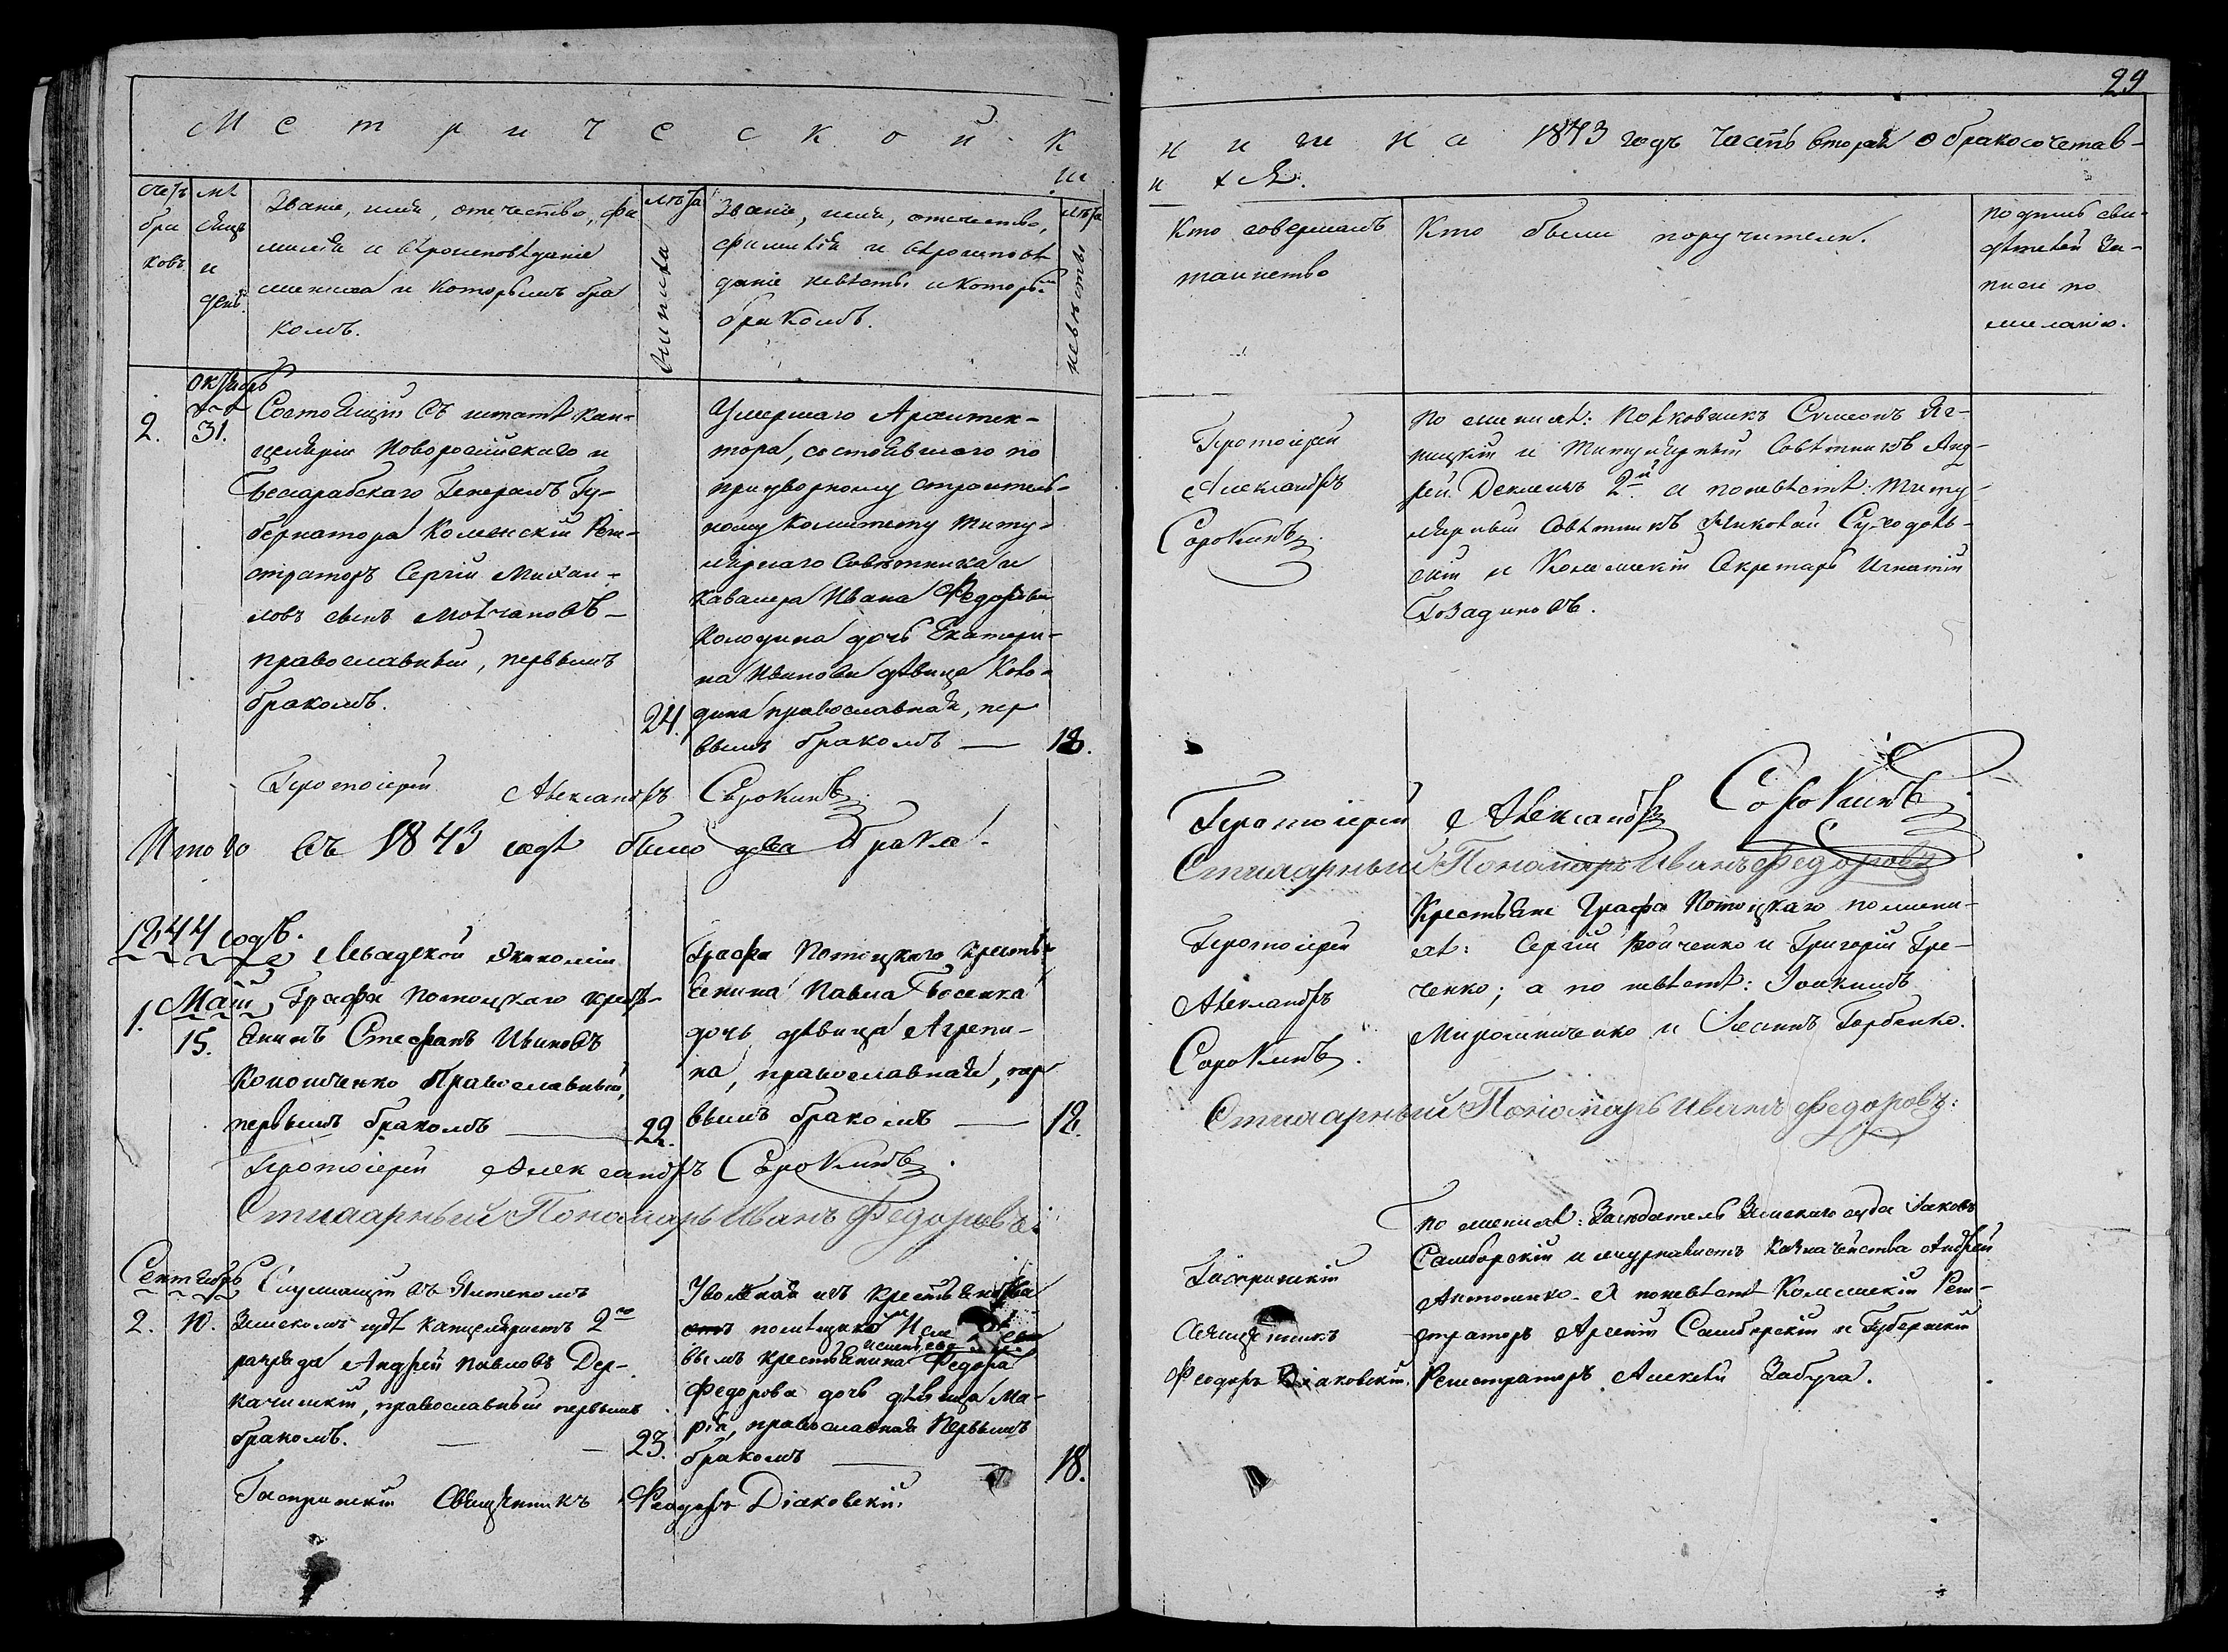 29
Метрической к
ниги на 1843 годъ часть вторая о бракосочетав-
ши
хся.
Счетъ
бра
ковъ
мѣ
сяцъ
и
день.
Званіе, имя, отечество, фа
милія и вѣроисповѣданіе
жениха и которымъ бра
комъ.
лѣта
жениха
Званіе, имя, отечество,
фамилія и вѣроисповѣ
даніе невѣсты и которымъ
бракомъ.
лѣта
невѣсты
Кто совершалъ
таинство
Кто были поручители.
подпись сви-
дѣтелей за-
писи по
желанію.
2.
Октябрь
31.
Состоящій въ штатѣ кан-
целяріи Новоросійскаго и
Бессарабскаго Генералъ Гу-
бернатора Колежскій Реги-
страторъ Сергій Михаи-
ловъ сынъ Молчановъ -
православный, первымъ
бракомъ.
24.
Умершаго Архитек-
тора, состоявшаго по
придворному строитель-
ному комитету Титу-
лярнаго Совѣтника и
кавалера Ивана Федорова
Колодина дочь Екатери-
на Иванова дѣвица Коло-
дина православная, пер
вымъ бракомъ —
18.
Протоіерей
Александръ
Сорокинъ.
По женихѣ: Полковникъ Симеонъ Яг-
ницкій и Титулярный Совѣтникъ Анд-
рей 2й а по невѣстѣ: Титу-
лярный Совѣтникъ Николай Суходоль-
скій и Колежскій Секретарь Игнатій
Гозадиновъ.
Протоіерей Александръ Сорокинъ
Итого въ 1843 годѣ было два брака.
Протоіерей Александръ Сорокинъ
Стихарный Пономарь Иванъ Федоровъ
1844 годъ.
1.
Май
15.
Ливадской Экономіи
Графа Потоцкаго кресть-
янинъ Стефанъ Ивановъ
Кононченко Православный,
первымъ бракомъ —
22.
Графа Потоцкаго кресть-
янина Павла Босенка
дочь дѣвица Агрепи-
на, православная, пер
вымъ бракомъ —
18.
Протоіерей
Александръ
Сорокинъ.
Крестьяне Графа Потоцкаго по жени-
хѣ: Сергій Бойченко и Григорій Гре-
ченко; а по невѣстѣ: Іоакимъ
Мирошниченко и Горбенко.
Протоіерей Александръ Сорокинъ.
Стихарный Пономарь Иванъ Федоровъ.
Стихарный Пономарь Иванъ Федоровъ:
Сентябрь
2.
10.
Служащій въ Ялтскомъ
Земскомъ судѣ канцеляристъ 2го
разряда Андрей Павловъ Дер-
качинскій, православный первымъ
бракомъ. —
23.
Уволеная изъ крестьянства
помѣщикомъ
вымъ крестьянина Федора
Федорова дочь дѣвица Ма-
рія, православная первымъ
бракомъ —
18.
Гаспринскій
Священникъ
Феодоръ Діаковскій.
По женихѣ: Засѣдатель Земскаго суда Іаковъ
Самборскій и журналистъ Казначейства Андрей
Антоненко - а по невѣстѣ Колежскій Реги-
страторъ Арсеній Самборскій и Губернскій
Регистраторъ Алексѣй Забуга.
Гаспринскій Священникъ Феодоръ Діаковскій